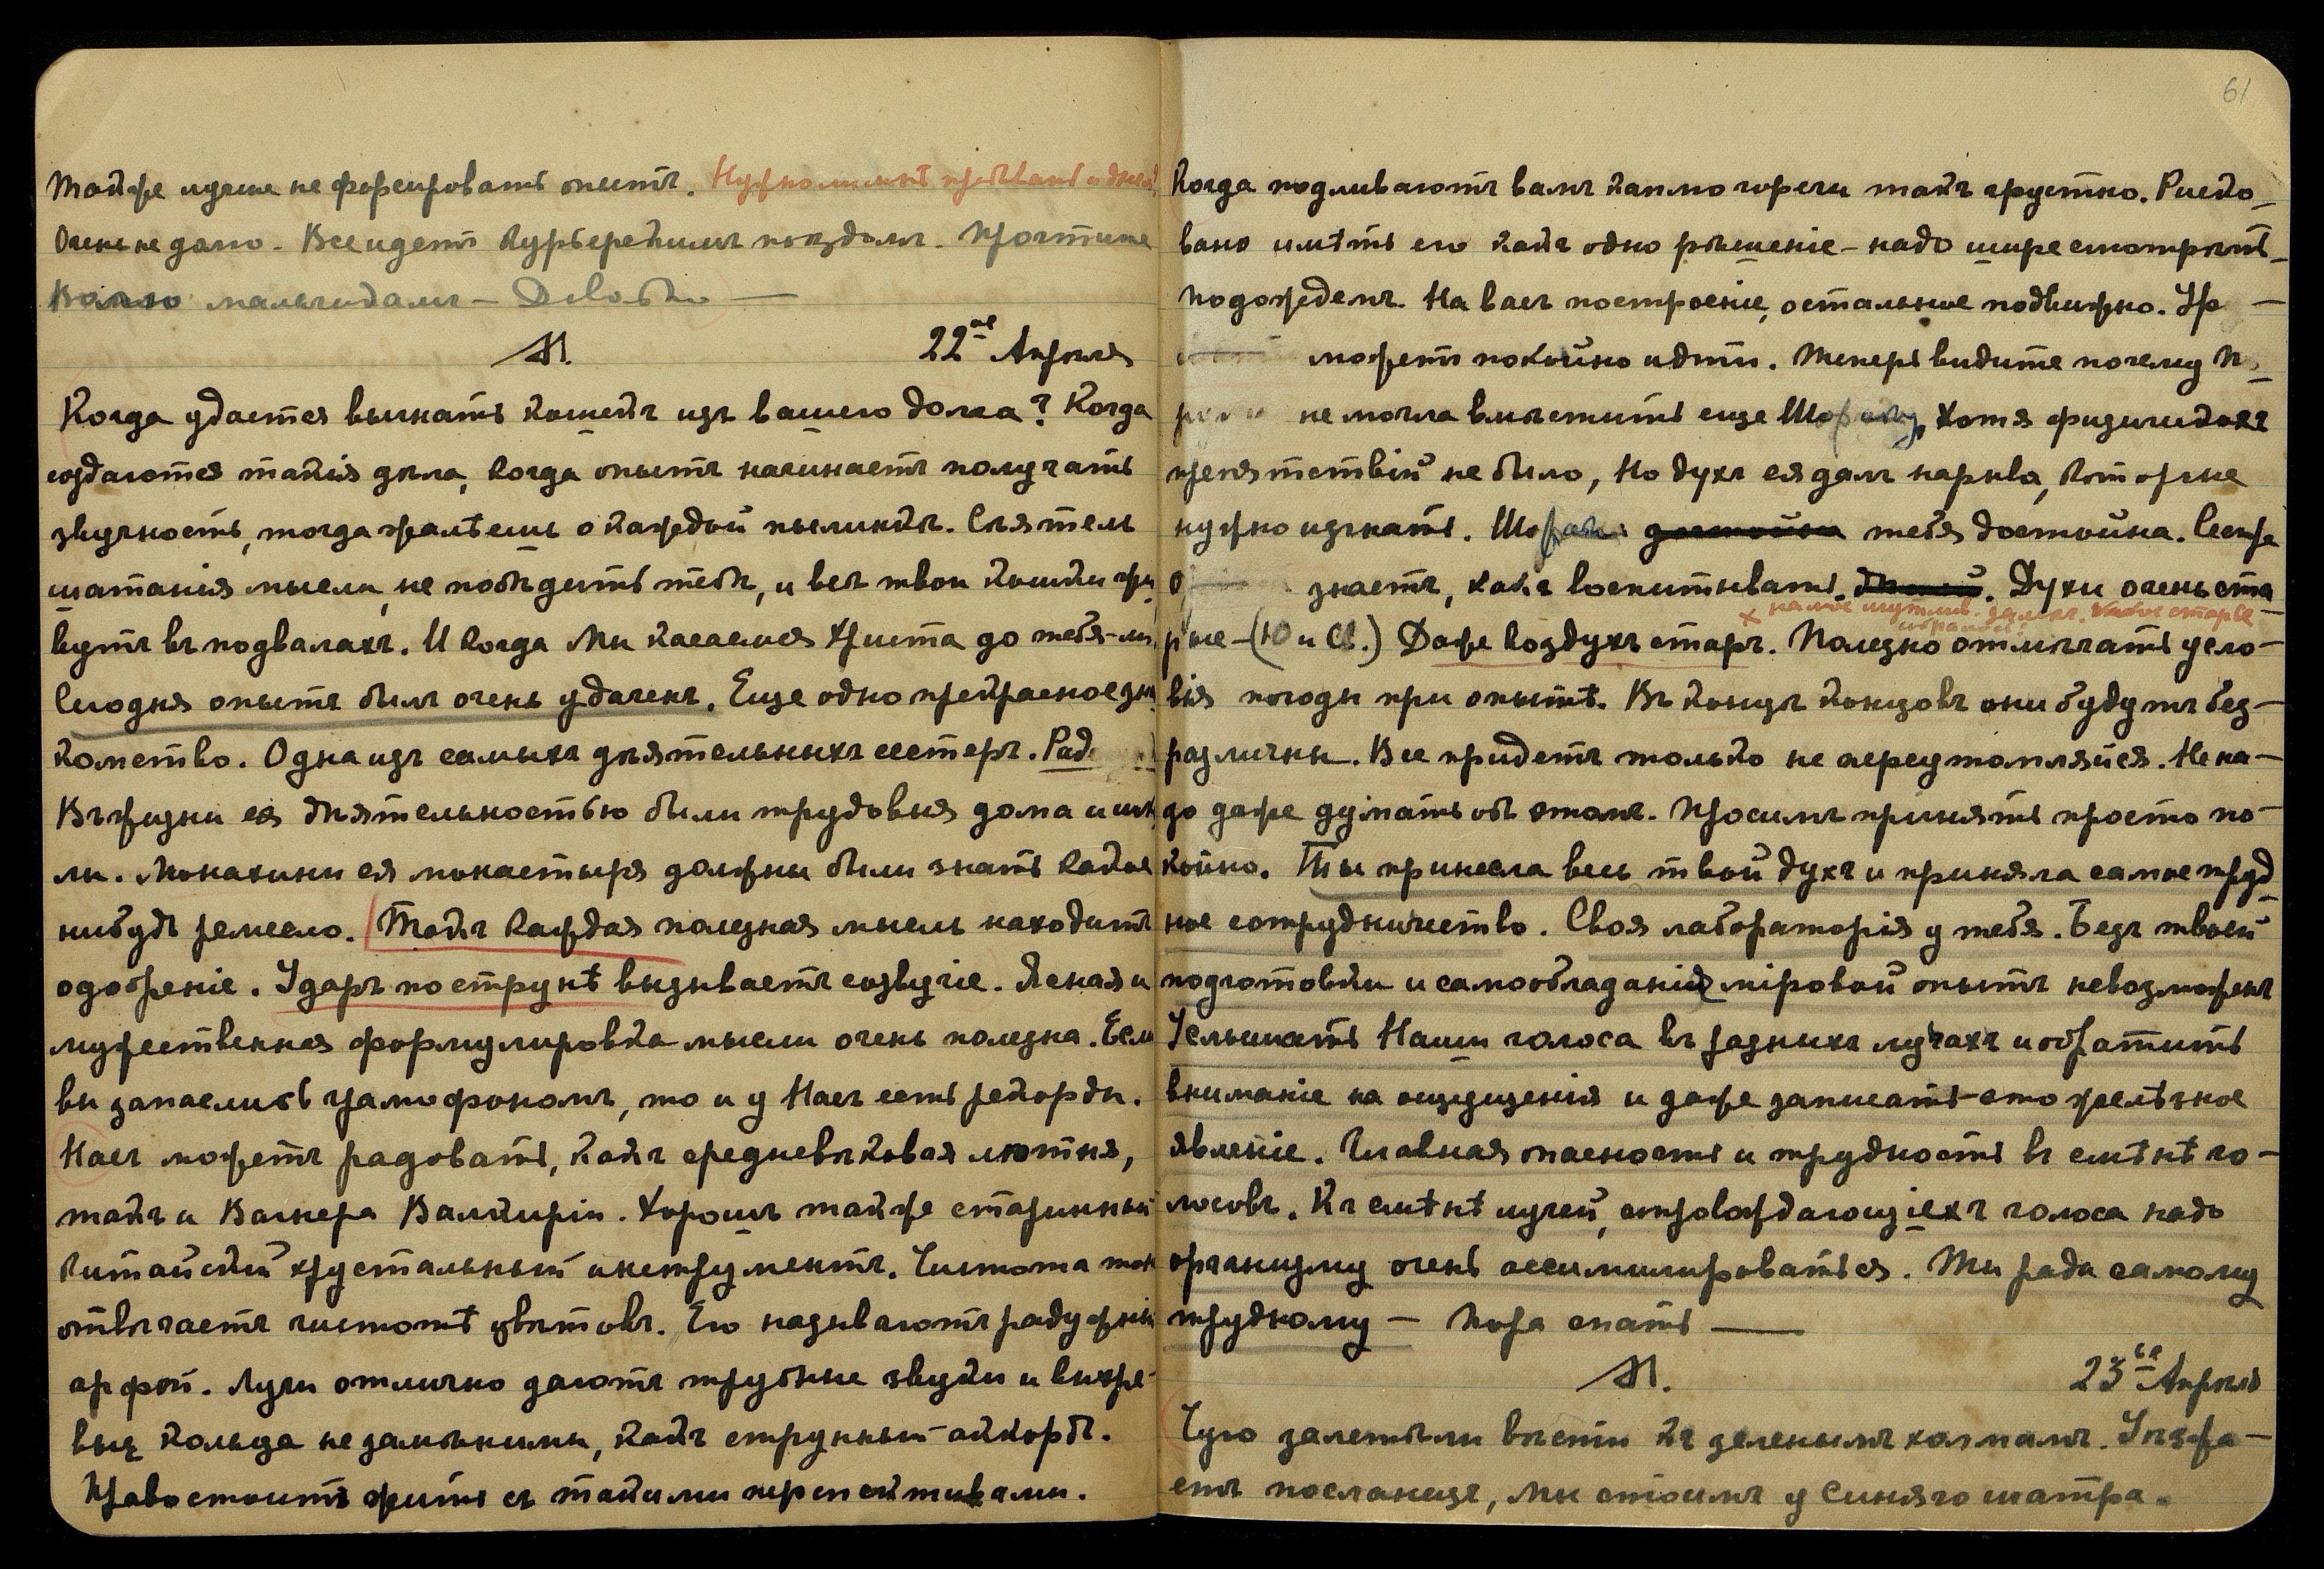 также лучше не форсировать опытъ.
Очень не дано. Все идетъ Курьерскимъ поѣздомъ. Простите
мальчикамъ — Довольно —
М. 22ое Апрѣля
Когда удастся выгнать кошекъ изъ вашего дома? Когда
создаются такія дѣла, когда опытъ начинаетъ получать
звучность, тогда жалѣешь о каждой пылинкѣ. Сѣятель
шатанія мысли, не побѣдить тебѣ, и всѣ твои кошки жи
вутъ въ подвалахъ. И когда Мы касаемся Христа до тебя-ли.
Сегодня опытъ былъ очень удаченъ. Еще одно прекрасное зна
комство. Одна изъ самыхъ дѣятельныхъ сестеръ.
Въ жизни ея дѣятельностью были трудовыя дома и шко
лы. Монахини ея монастыря должны были знать какое
нибудь ремесло. Такъ каждая полезная мысль находитъ
одобреніе. Ударъ по струнѣ вызываетъ созвучіе. Ясная и
мужественная формулировка мысли очень полезна. Если
вы запаслись грамофономъ, то и у Насъ есть рекорды.
Насъ можетъ радовать, какъ средневѣковая лютня,
такъ и Вагнера Валкирiи. Хорошъ также старинный
китайскiй хрустальный инструментъ. Чистота тона
отвѣчаетъ чистотѣ цвѣтовъ. Его называютъ радужный
арфой. Лучи отлично даютъ трубные звуки и вихре-
выя кольца незамѣнимы, какъ струнный аккордъ.
Право стоитъ жить съ такими перспективами.
61
Когда подливаютъ вамъ каплю горечи такъ грустно. Риско-
вано имѣть его какъ одно рѣшеніе — надо шире смотрѣть —
подождемъ. На васъ построеніе, остальное подвижно.
можетъ покойно идти. Теперь видите почему
не могла вмѣстить еще хотя физическихъ
препятствій не было, но духъ ея далъ нарывы, которые
нужно изгнать. тебя достойна. Сестра
О. знаетъ, какъ воспитывать. Духи очень ста
рые — (Ю и Св.) Даже воздухъ старъ. Полезно отмѣчать усло-
вія погоды при опытѣ. Въ концѣ концовъ они будутъ без-
различны. Все придетъ только не переутомляйся. Не на-
до даже думать объ этомъ. Просимъ принять просто по-
койно. Ты принесла весь твой духъ и приняла самое труд
ное сотрудничество. Своя лабораторія у тебя. Безъ твоей
подготовки и самообладанія міровой опытъ невозможенъ
Услышать Наши голоса въ разныхъ лучахъ и обратить
вниманіе на ощущенія и даже записать это желѣзное
явленіе. Главная опасность и трудность въ смѣнѣ го-
лосовъ. Къ смѣнѣ лучей, сопровождающихъ голоса надо
организму очень ассимилироваться. Ты рада самому
трудному — Пора спать —
М. 23ья Апрѣля
Чую залетѣли вѣсти къ зеленымъ холмамъ.
посланецъ, Мы стоимъ у Синяго шатра.